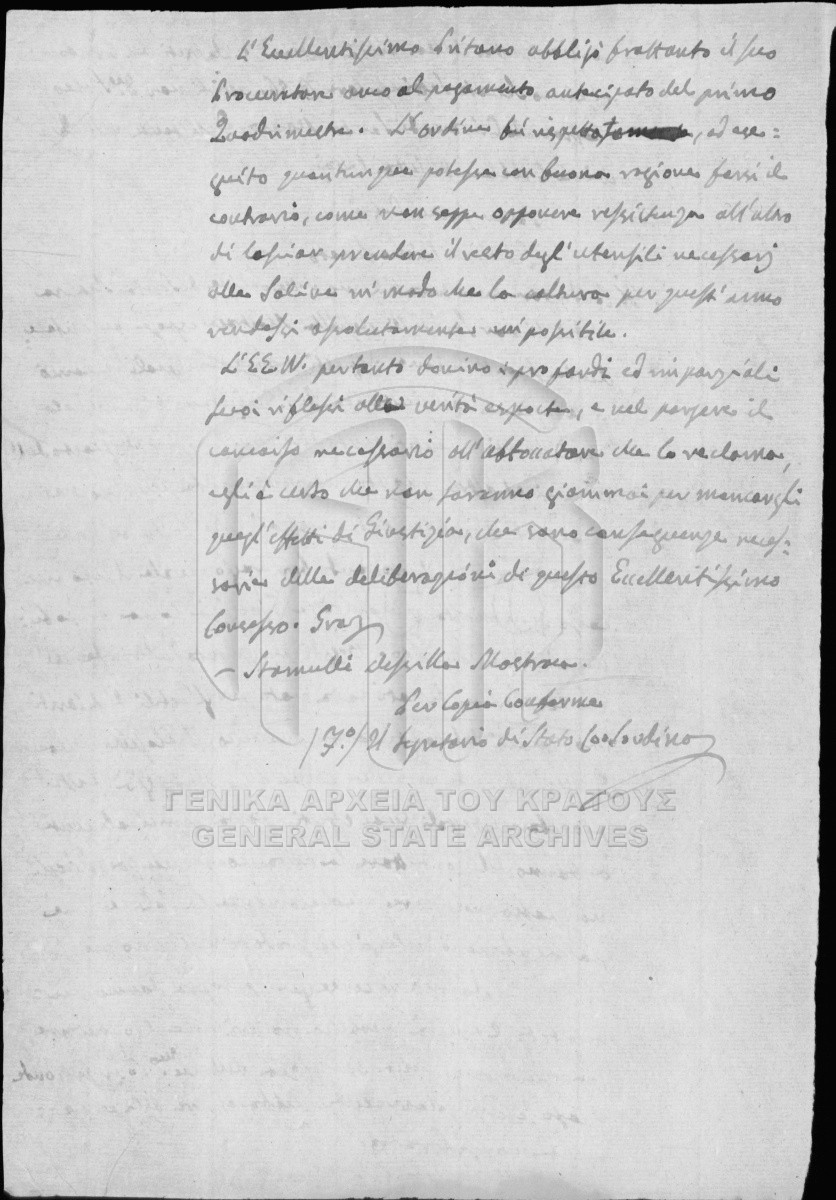 L'Eccellentissimo Pritano obbligò frattanto il suo
Procuratore anco al pagamento antecipato del primo
Quadrimestre. L'ordine fù rispettato, ed ese=
guito quantunque potesse con buona ragione farsi il
contrario, come non seppe opponere ressistenza all'altro
di lasciar prendere il resto degl'utensili necessarj
alle Saline in modo che la coltura per quest'anno
rendessi assolutamente impossibile.
L'EE.VV. pertanto donino i profondi ed imparziali
suoi riflessi alle verità esposte, e nel porgere il
concorso necessario all'abboccatore che lo reclama,
egli è certo che non saranno giammai per mancargli
quegl'effetti di Giustizia, che sono conseguenze neces=
sarie delle deliberazioni di questo Eccellentissimo
Consesso. Graz
– Stamulli Mostraca.
Per Copia Conforme
Il Segretario di Stato Loo Sordina
ΓΕΝΙΚΑ ΑΡΧΕΙΑ ΤΟΥ ΚΡΑΤΟΥΣ
GENERAL STATE ARCHIVES